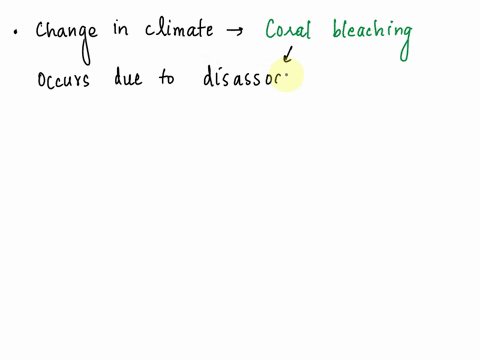 • Change in climate → Coral bleaching
occurs due to disassoc